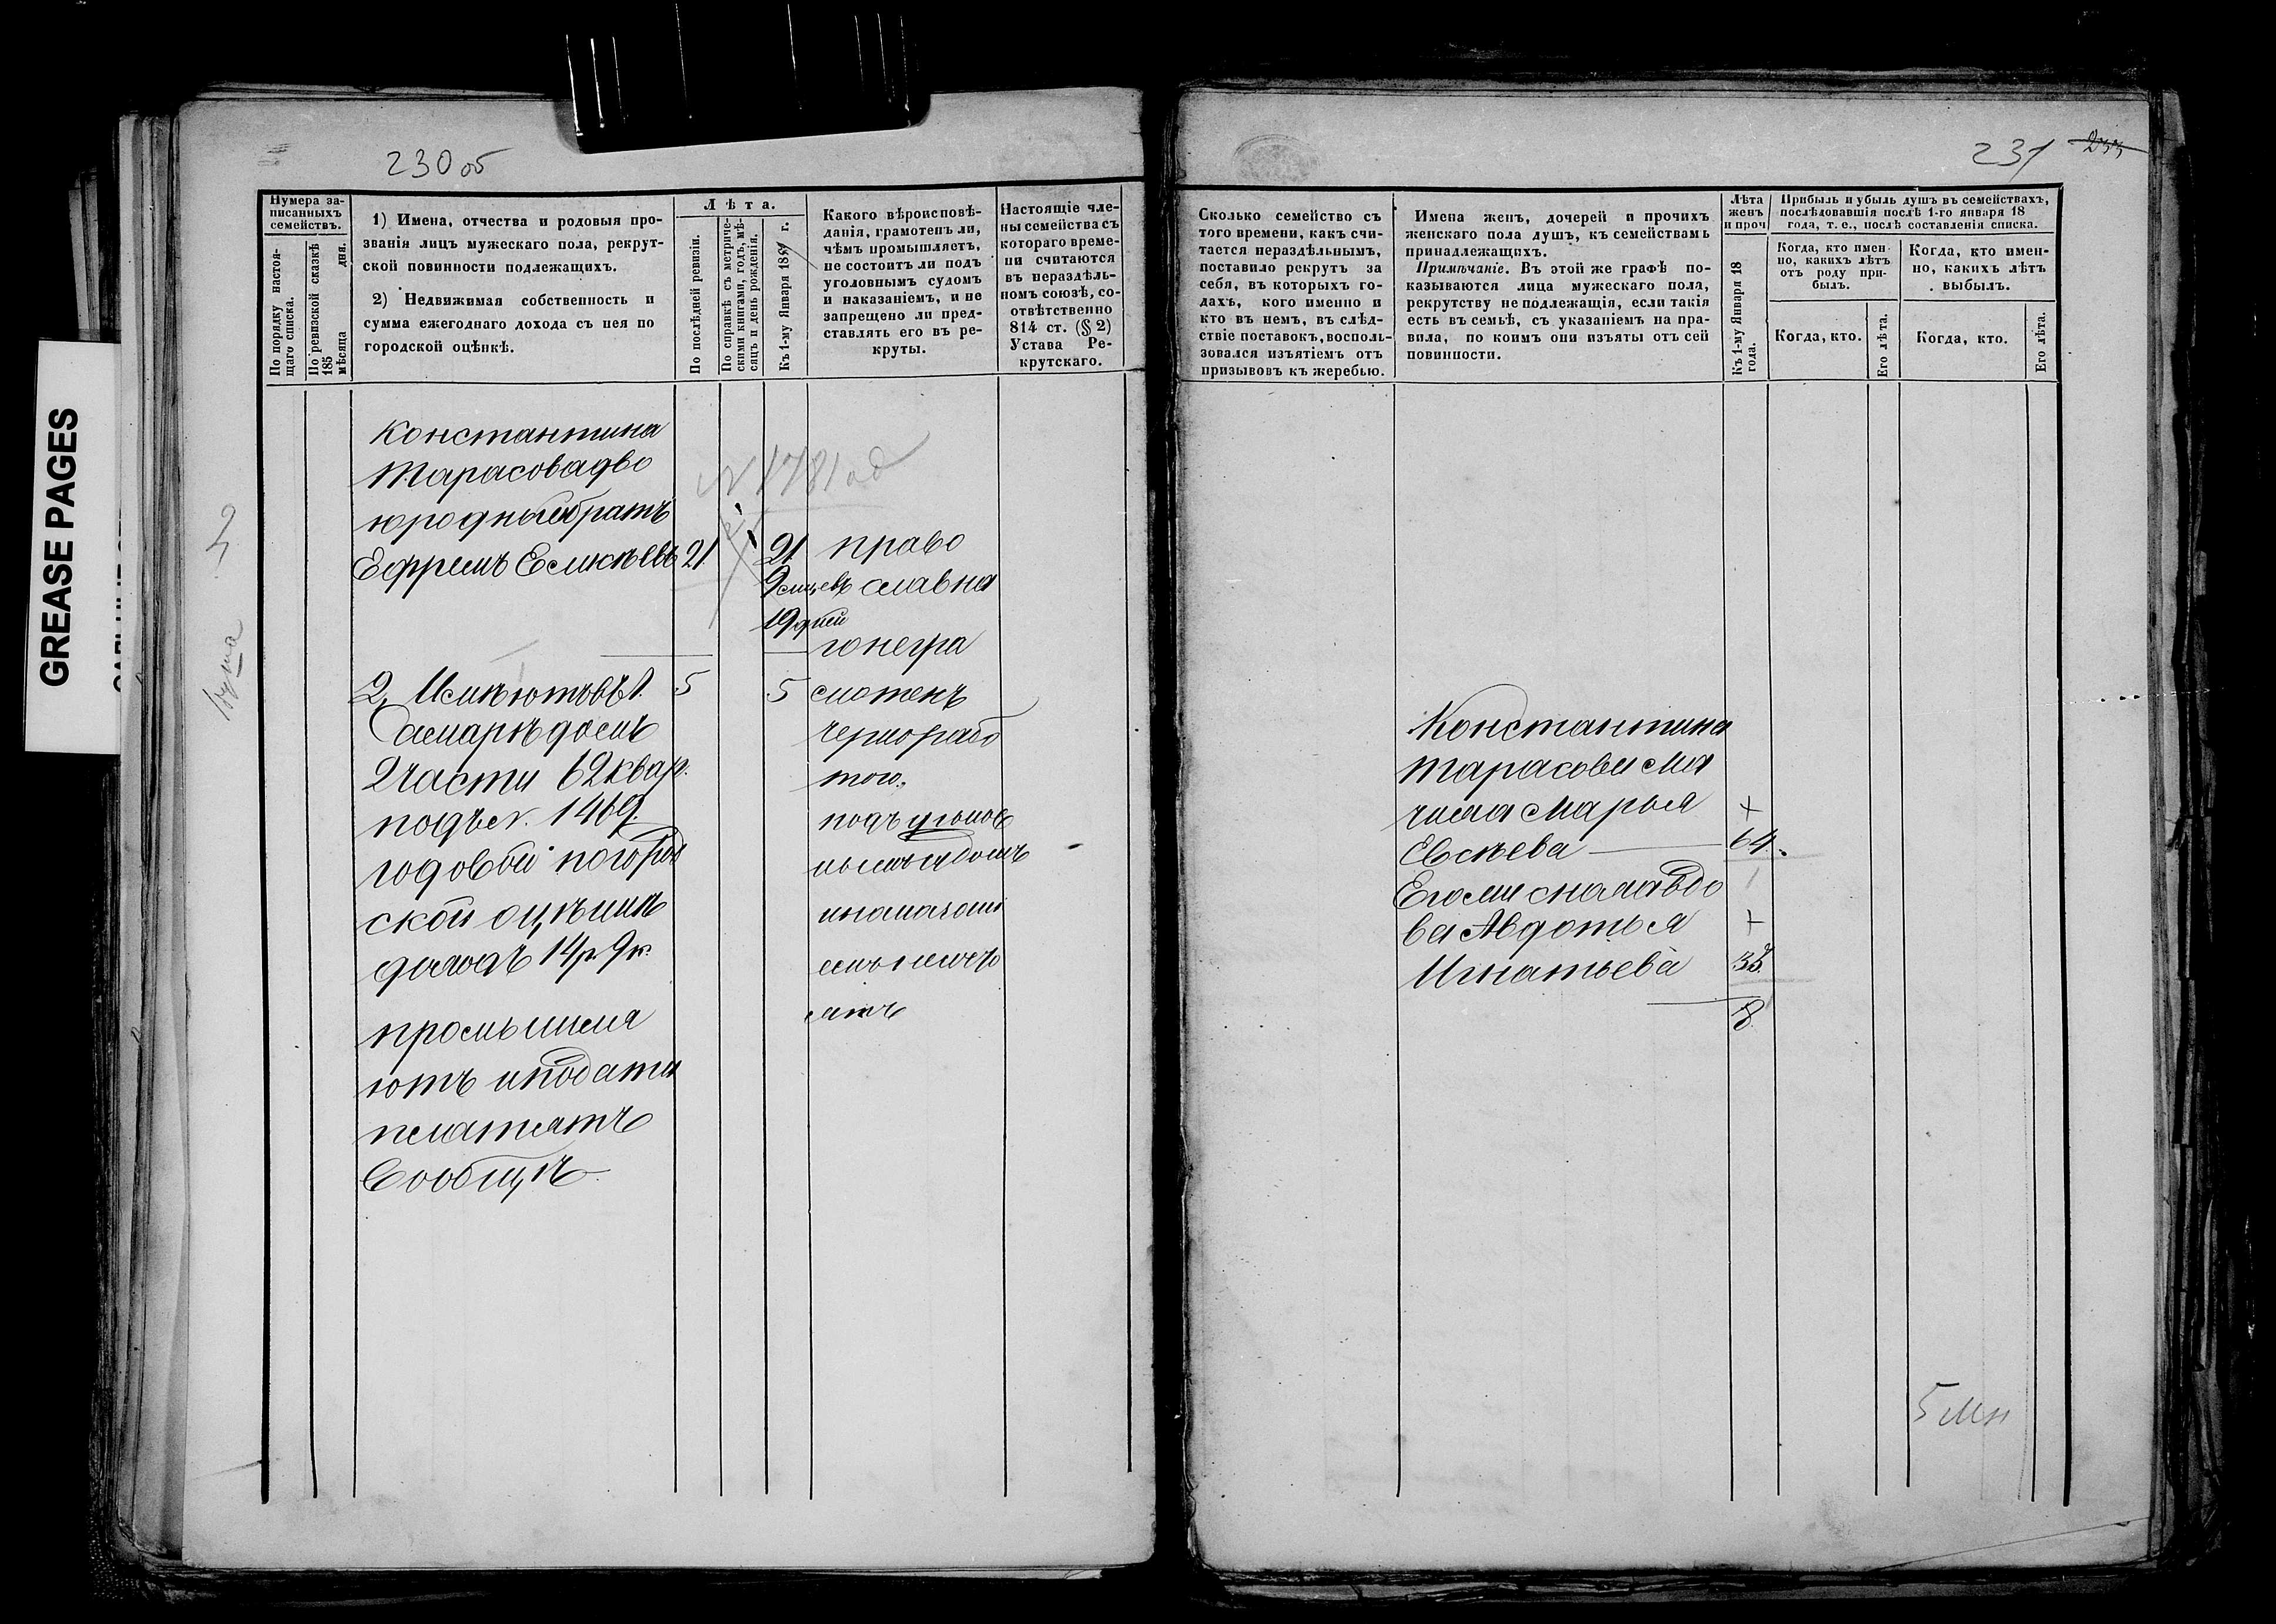 GREASE PAGES
230 об
Нумера записанныхъ семействъ.
По порядку настоящаго списка.
По ревизской сказкѣ 185 мѣсяца дня.
1) Имена, отчества и родовыя прозванія лицъ мужескаго пола, рекрутской повинности подлежащихъ.
2) Недвижимая собственность и сумма ежегоднаго дохода съ нея по городской оцѣнкѣ.
Лѣта.
По послѣдней ревизіи.
По справкѣ съ метрическими книгами, годъ, мѣсяцъ и день рожденія.
Къ 1-му Января 185 г.
Какого вѣроисповѣданія, грамотенъ ли, чѣмъ промышляетъ, не состоитъ ли подъ уголовнымъ судомъ и наказаніемъ, и не запрещено ли представлять его въ рекруты.
Настоящіе члены семейства съ котораго времени считаются въ нераздѣльномъ союзѣ, соотвѣтственно 814 ст. (§ 2) Устава Рекрутскаго.
Константина
Тарасова дво
юродный братъ
Ефремъ 21. 21
9 мцевъ
19 дней
N 1781 об
право
славна
го негра
мотенъ
чернорабо
подъ уголов
нымъ судомъ
2, Имѣютъ въ г. 5 5
Самарѣ домъ
2 части 62 квар.
подъ N. 1469.
годовой по город
ской оцѣнкѣ
доходъ 14 р. 9 к.
промышля
ютъ и подати
платятъ
Сообщѣ.
231 233
Сколько семейство съ того времени, какъ считается нераздѣльнымъ, поставило рекрутъ за себя, въ которыхъ годахъ, кого именно и кто въ немъ, въ слѣдствіе поставокъ, воспользовался изъятіемъ отъ призывовъ къ жеребью.
Имена женъ, дочерей и прочихъ женскаго пола душъ, къ семействамъ принадлежащихъ.
Примѣчаніе. Въ этой же графѣ показываются лица мужескаго пола, рекрутству не подлежащія, если такія есть въ семьѣ, съ указаніемъ на правила, по коимъ они изъяты отъ сей повинности.
Лѣта женъ и проч
Къ 1-му Января 18 года.
Прибыль и убыль душъ въ семействахъ, послѣдовавшія послѣ 1-го января 18 года, т. е., послѣ составленія списка.
Когда, кто именно, какихъ лѣтъ отъ роду прибылъ.
Когда, кто именно, какихъ лѣтъ выбылъ.
Когда, кто.
Его лѣта.
Когда, кто.
Его лѣта.
Константина
Тарасова ма
чиха Марья +
Евсѣева 64.
вдо
ва Авдотья +
Игнатьева